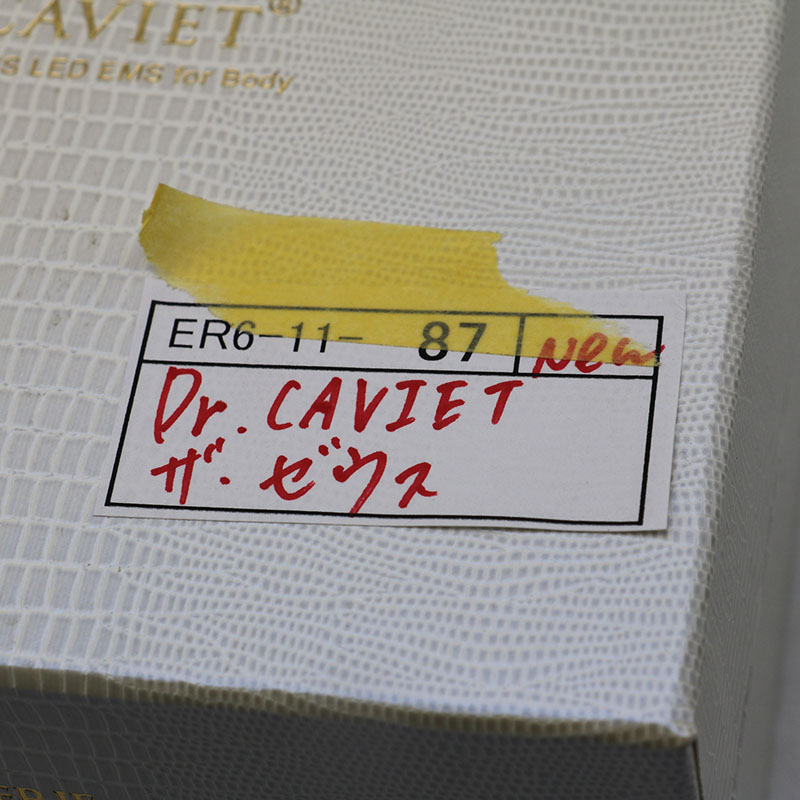 CAVIET®
S LED EMS for Body
ER6-11- 87 New
Dr. CAVIET
ザ・ゼウス